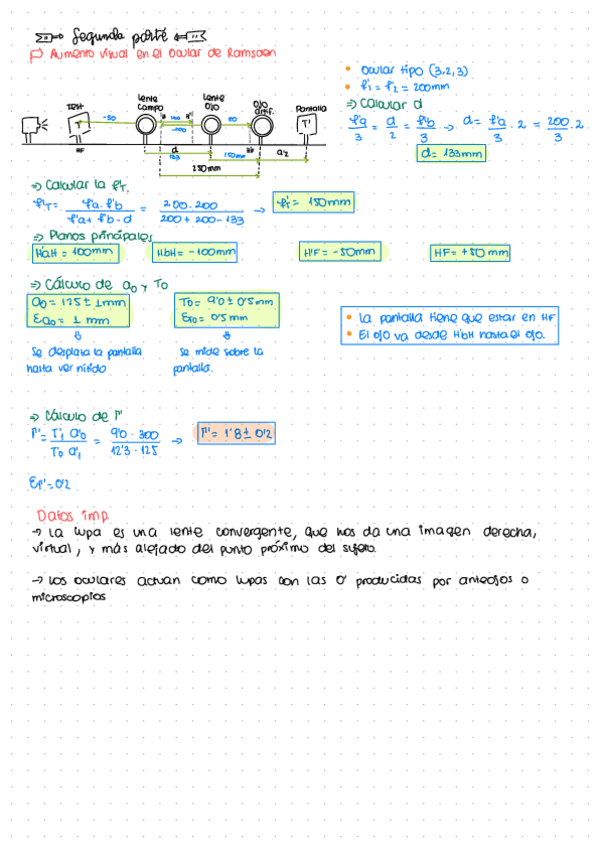 Segunda parte
Aumento visual en el Ocular de Ramsden
• Ocular tipo (3,2,3)
• f'1 = f'2 = 200mm
⇒ Calcular d
f'a/3 = d/2 = f'b/3 → d = f'a/3 · 2 = 200/3 · 2
d = 133mm
Test
lente campo
lente ojo
ojo artif.
Pantalla
T
T'
-50
H
H'
100
-100
50
HF
HF
d
133
150mm
a'2
250mm
⇒ Calcular la f'T.
f'T = f'a · f'b / f'a + f'b - d = 200 · 200 / 200 + 200 - 133 → f'T = 150mm
⇒ Planos principales
HaH = 100mm
H'bH' = -100mm
H'F' = -50mm
HF = +50mm
⇒ Cálculo de a0 y T0
a0 = 125 ± 1mm
Ea0 = 1 mm
T0 = 9'0 ± 0'5mm
ET0 = 0'5 mm
• La pantalla tiene que estar en HF
• El ojo va desde H'bH' hasta el ojo.
Se desplaza la pantalla
hasta ver nítido
Se mide sobre la
pantalla.
⇒ Cálculo de Γ'
Γ' = T'1 a'0 / T0 a'1 = 9'0 · 300 / 12'3 · 125 → Γ' = 1'8 ± 0'2
EΓ' = 0'2
Datos imp
→ La lupa es una lente convergente, que nos da una imagen derecha,
virtual, y más alejado del punto próximo del sujeto.
→ Los oculares actúan como lupas con las O' producidas por anteojos o
microscopios